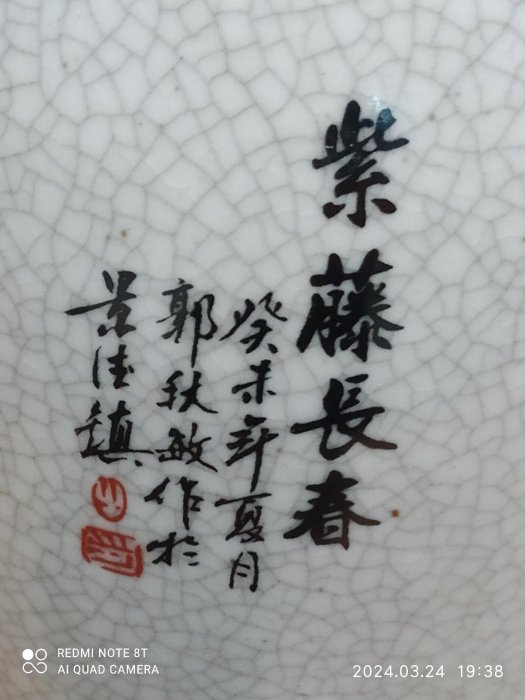 紫藤長春
癸未年夏月
郭秋敏作於
景德鎮
REDMI NOTE 8T
AI QUAD CAMERA
2024.03.24 19:38